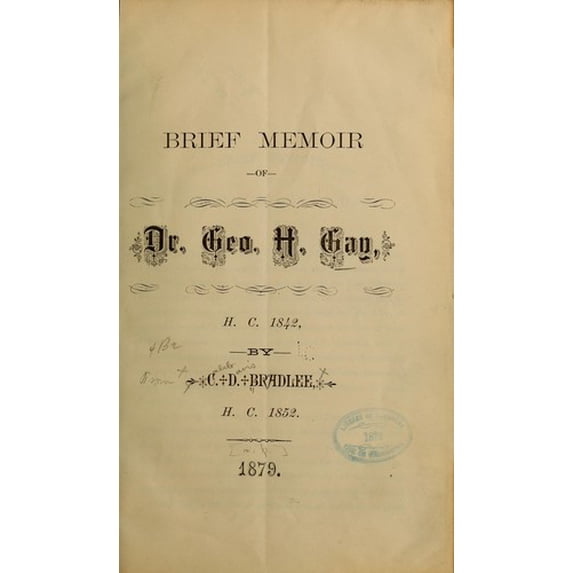 BRIEF MEMOIR
—OF—
Dr. Geo. H. Gay,
H. C. 1842,
—BY—
C. D. BRADLEE,
H. C. 1852.
1879.